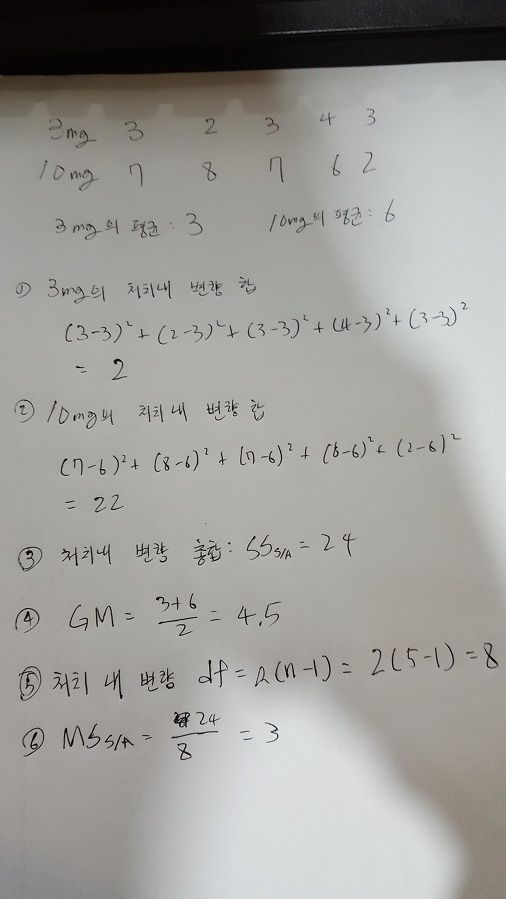 3mg 3 2 3 4 3
10mg 7 8 7 6 2
3mg의 평균: 3 10mg의 평균: 6
① 3mg의 처치내 변량 합
(3-3)² + (2-3)² + (3-3)² + (4-3)² + (3-3)²
= 2
② 10mg의 처치내 변량 합
(7-6)² + (8-6)² + (7-6)² + (6-6)² + (2-6)²
= 22
③ 처치내 변량 총합: SS_{S/A} = 24
④ GM = \frac{3+6}{2} = 4.5
⑤ 처치 내 변량 df = a(n-1) = 2(5-1) = 8
⑥ MS_{S/A} = \frac{24}{8} = 3